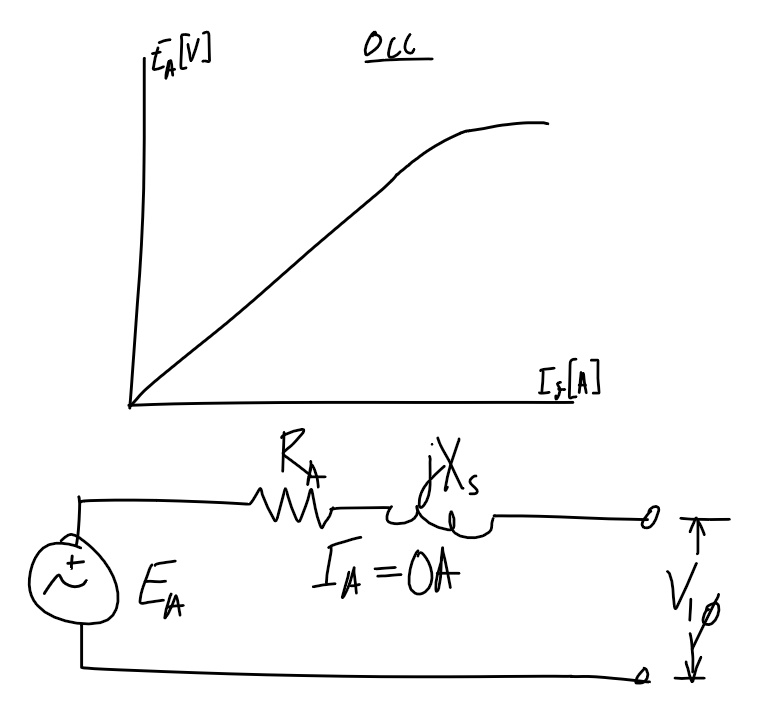 E_A[V]
OCC
I_f[A]
R_A
jX_s
I_A=0A
+
E_A
V_1φ